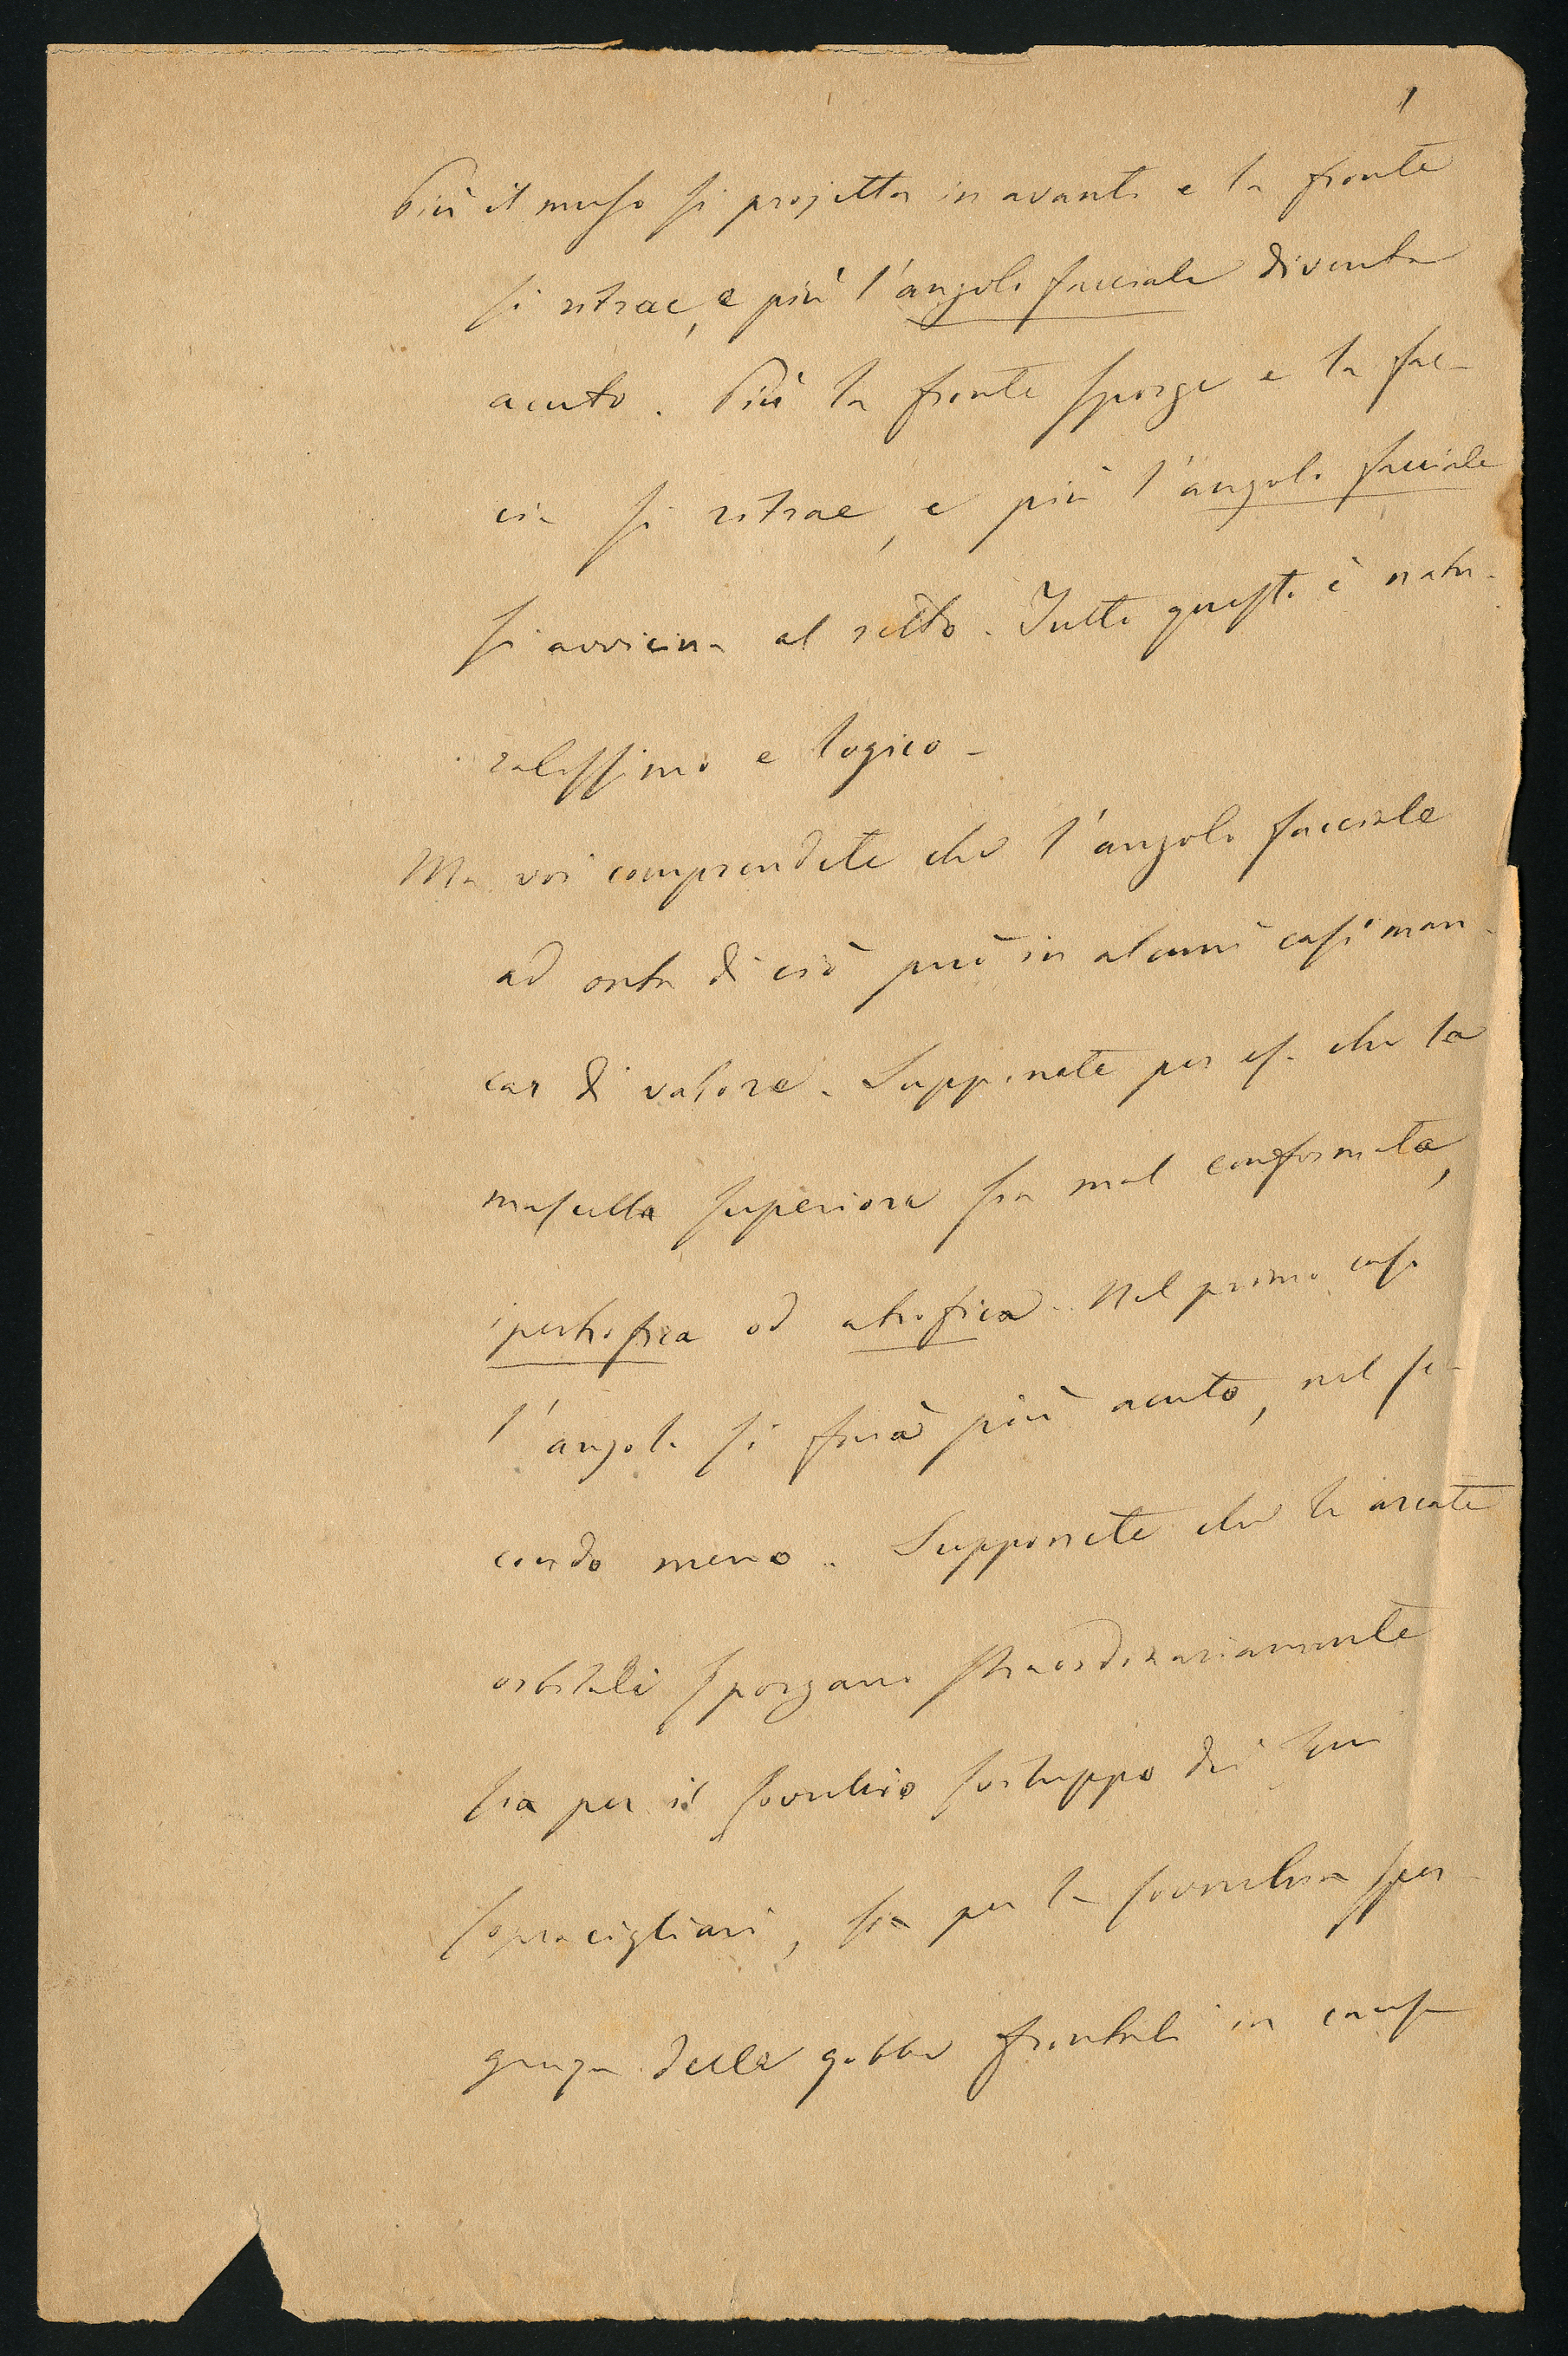 1
Più il muso si projetta in avanti e la fronte
si ritrae, e più l'angolo facciale diventa
acuto. Più la fronte sporge e la fac-
cia si ritrae, e più l'angolo facciale
si avvicina al retto. Tutto questo è natu-
ralissimo e logico -
Ma voi comprendete che l'angolo facciale
ad onta di ciò può in alcuni casi man-
car di valore. Supponete per es. che la
mascella superiore sia mal conformata,
ipertrofica od atrofica. Nel primo caso
l'angolo si farà più acuto, nel se-
condo meno. Supponete che le arcate
orbitali sporgano straordinariamente
sia per il soverchio sviluppo dei seni
sopracigliari, sia per la soverchia spor-
genza delle gobbe frontali in